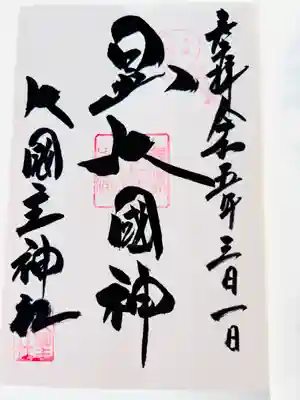 奉拝 令和五年三月一日
日出大國神
大國主神社